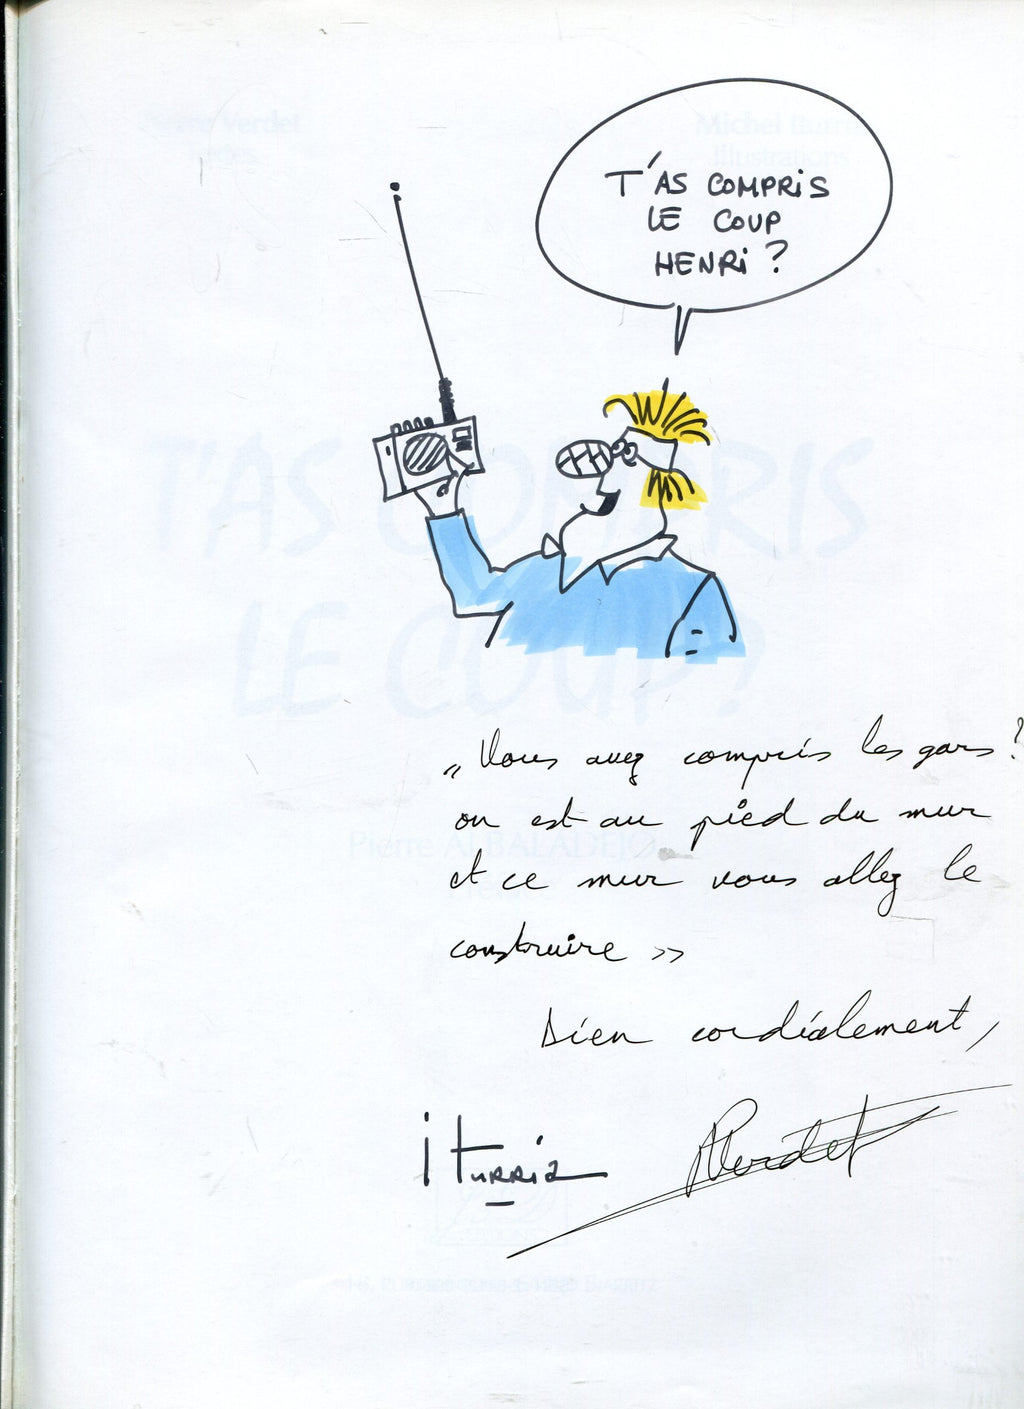 T'AS COMPRIS
LE COUP
HENRI ?
Pierre Verdet
Michel Iturria
Illustrations
T'AS COMPRIS
LE COUP ?
„ Vous avez compris les gars ?
on est au pied du mur
et ce mur vous allez le
construire »
Pierre ALBALADEJO
Bien cordialement,
iTURRia
PVerdet